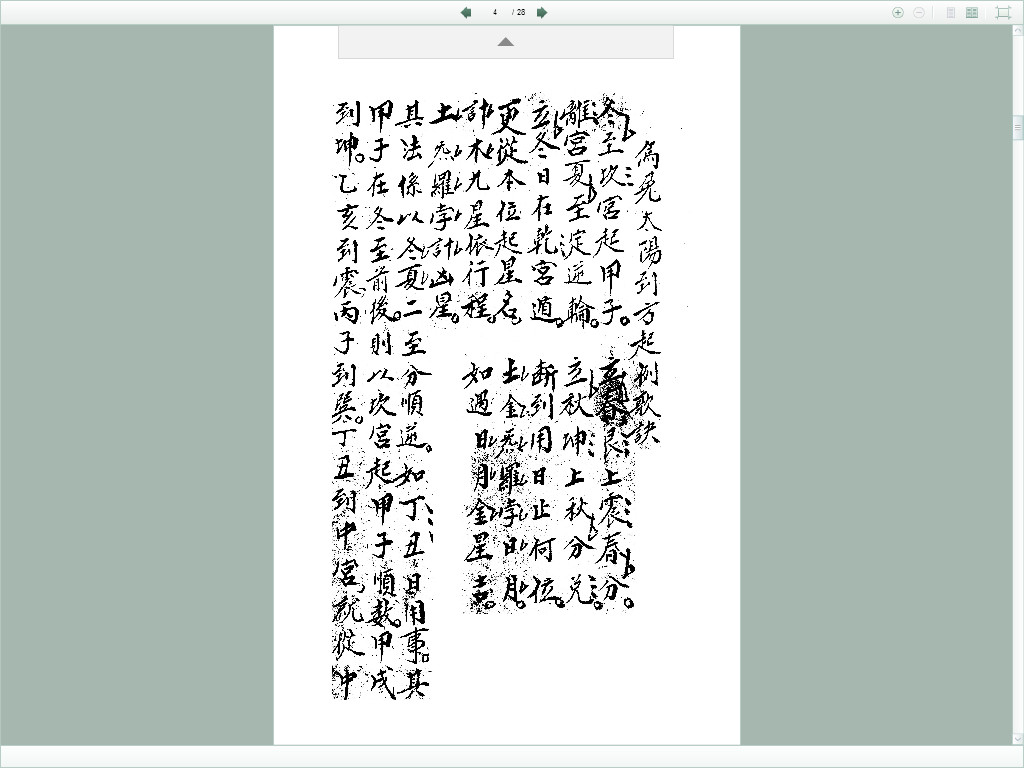 4 / 28
烏兔太陽到方起例歌訣
冬至坎宮起甲子。立春艮上震春分。
離宮夏至定逆輪。立秋坤上秋分兌。
立冬日在乾宮遁。斷到用日止何位。
更從本位起星名。土金炁羅孛日月。
計木九星依行程。如遇日月金星吉。
土炁羅孛計凶星。
其法係以冬夏二至分順逆。如丁丑日用事。其
甲子在冬至前後。則以坎宮起甲子順數。甲戌
到坤。乙亥到震。丙子到巽。丁丑到中宮。就從中